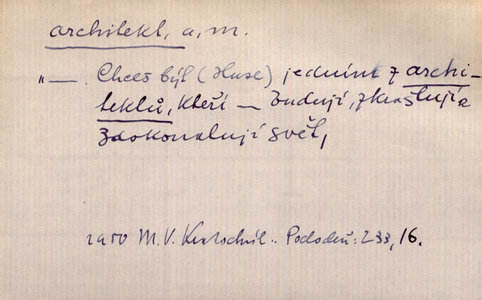 architekt, a, m.
„— Chceš býl (Huse) jedním z archi-
tektů, kteří — budují, zkrášlují a
zdokonalují svět,
1950 M. V. Kratochvíl.. Pochodeň: 233, 16.